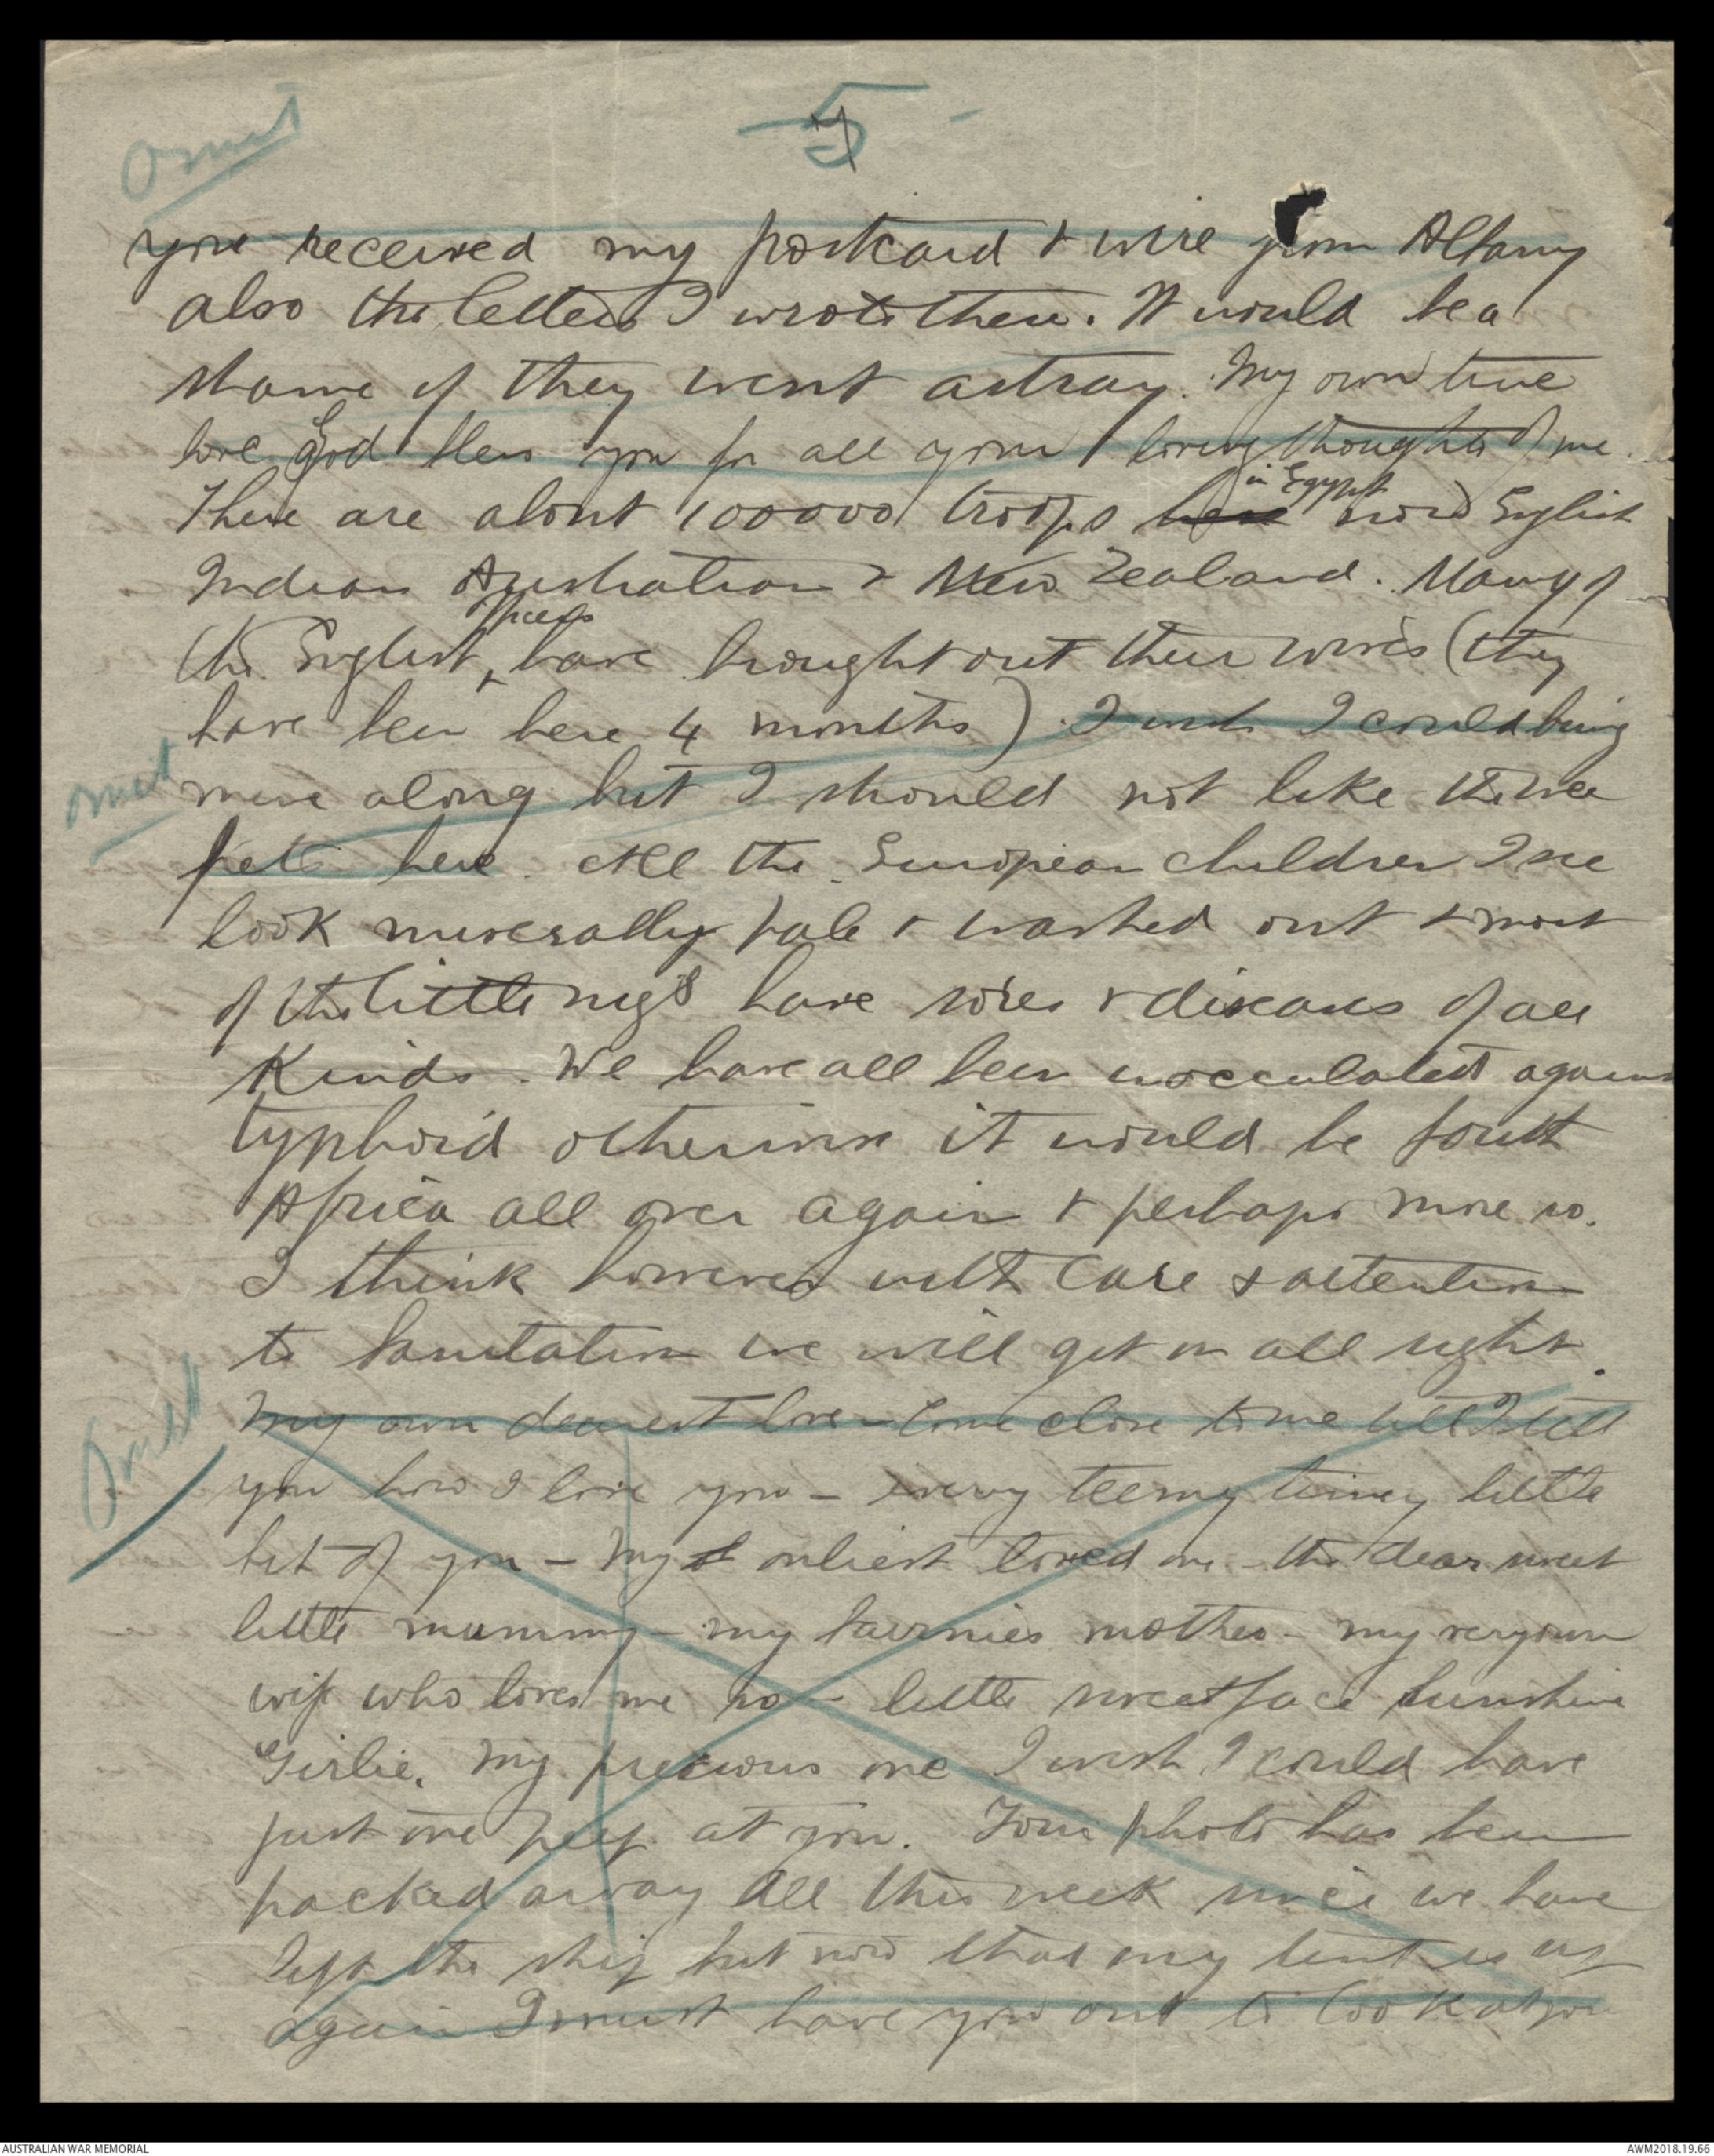 Omit
5
you received my postcard & wire from Albany
also the letters I wrote there. It would be a
shame if they went astray. My own true
love God bless you for all your loving thoughts of me.
There are about 100000 troops here in Egypt now English
Indian Australian & New Zealand. Many of
the English officers have brought out their wives (they
have been here 4 months). I wish I could bring
omit
mine along but I should not like the wee
pets here. All the European children I see
look miserably pale & washed out & most
of the little nigs have sores & diseases of all
Kinds. We have all been inocculated against
typhoid otherwise it would be South
Africa all over again & perhaps more so.
I think however with care & attention
to Sanitation we will get on all right.
Omit
My own dearest love – Come close to me till I tell
you how I love you – every teeny tiney little
bit of you – My onliest loved one – the dear sweet
little mummy – my mother – my very own
wife who loves me so – little sweetface sunshine
Girlie. My precious one I wish I could have
just one peep at you. Your photo has been
packed away all this week since we have
left the ship but now that my tent is up
again I must have you out to look at you
AUSTRALIAN WAR MEMORIAL
AWM2018.19.66